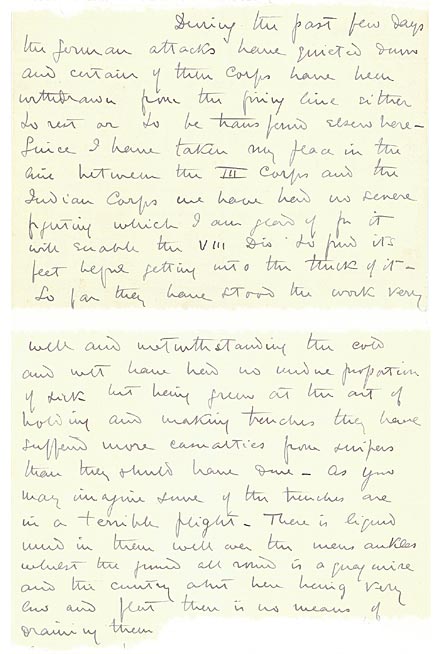 During the past few days
the German attacks have quieted down
and certain of their Corps have been
withdrawn from the firing line either
to rest or to be transferred elsewhere –
Since I have taken my place in the
line between the III Corps and the
Indian Corps we have had no severe
fighting which I am glad of for it
will enable the VIII Div to find its
feet before getting into the thick of it –
So far they have stood the work very
well and notwithstanding the cold
and wet have had no undue proportion
of sick but being green at the art of
holding and making trenches they have
suffered more casualties from snipers
than they should have done – As you
may imagine some of the trenches are
in a terrible plight – There is liquid
mud in them well over the mens ankles
whilst the ground all round is a quagmire
and the country about here being very
low and flat there is no means of
draining them